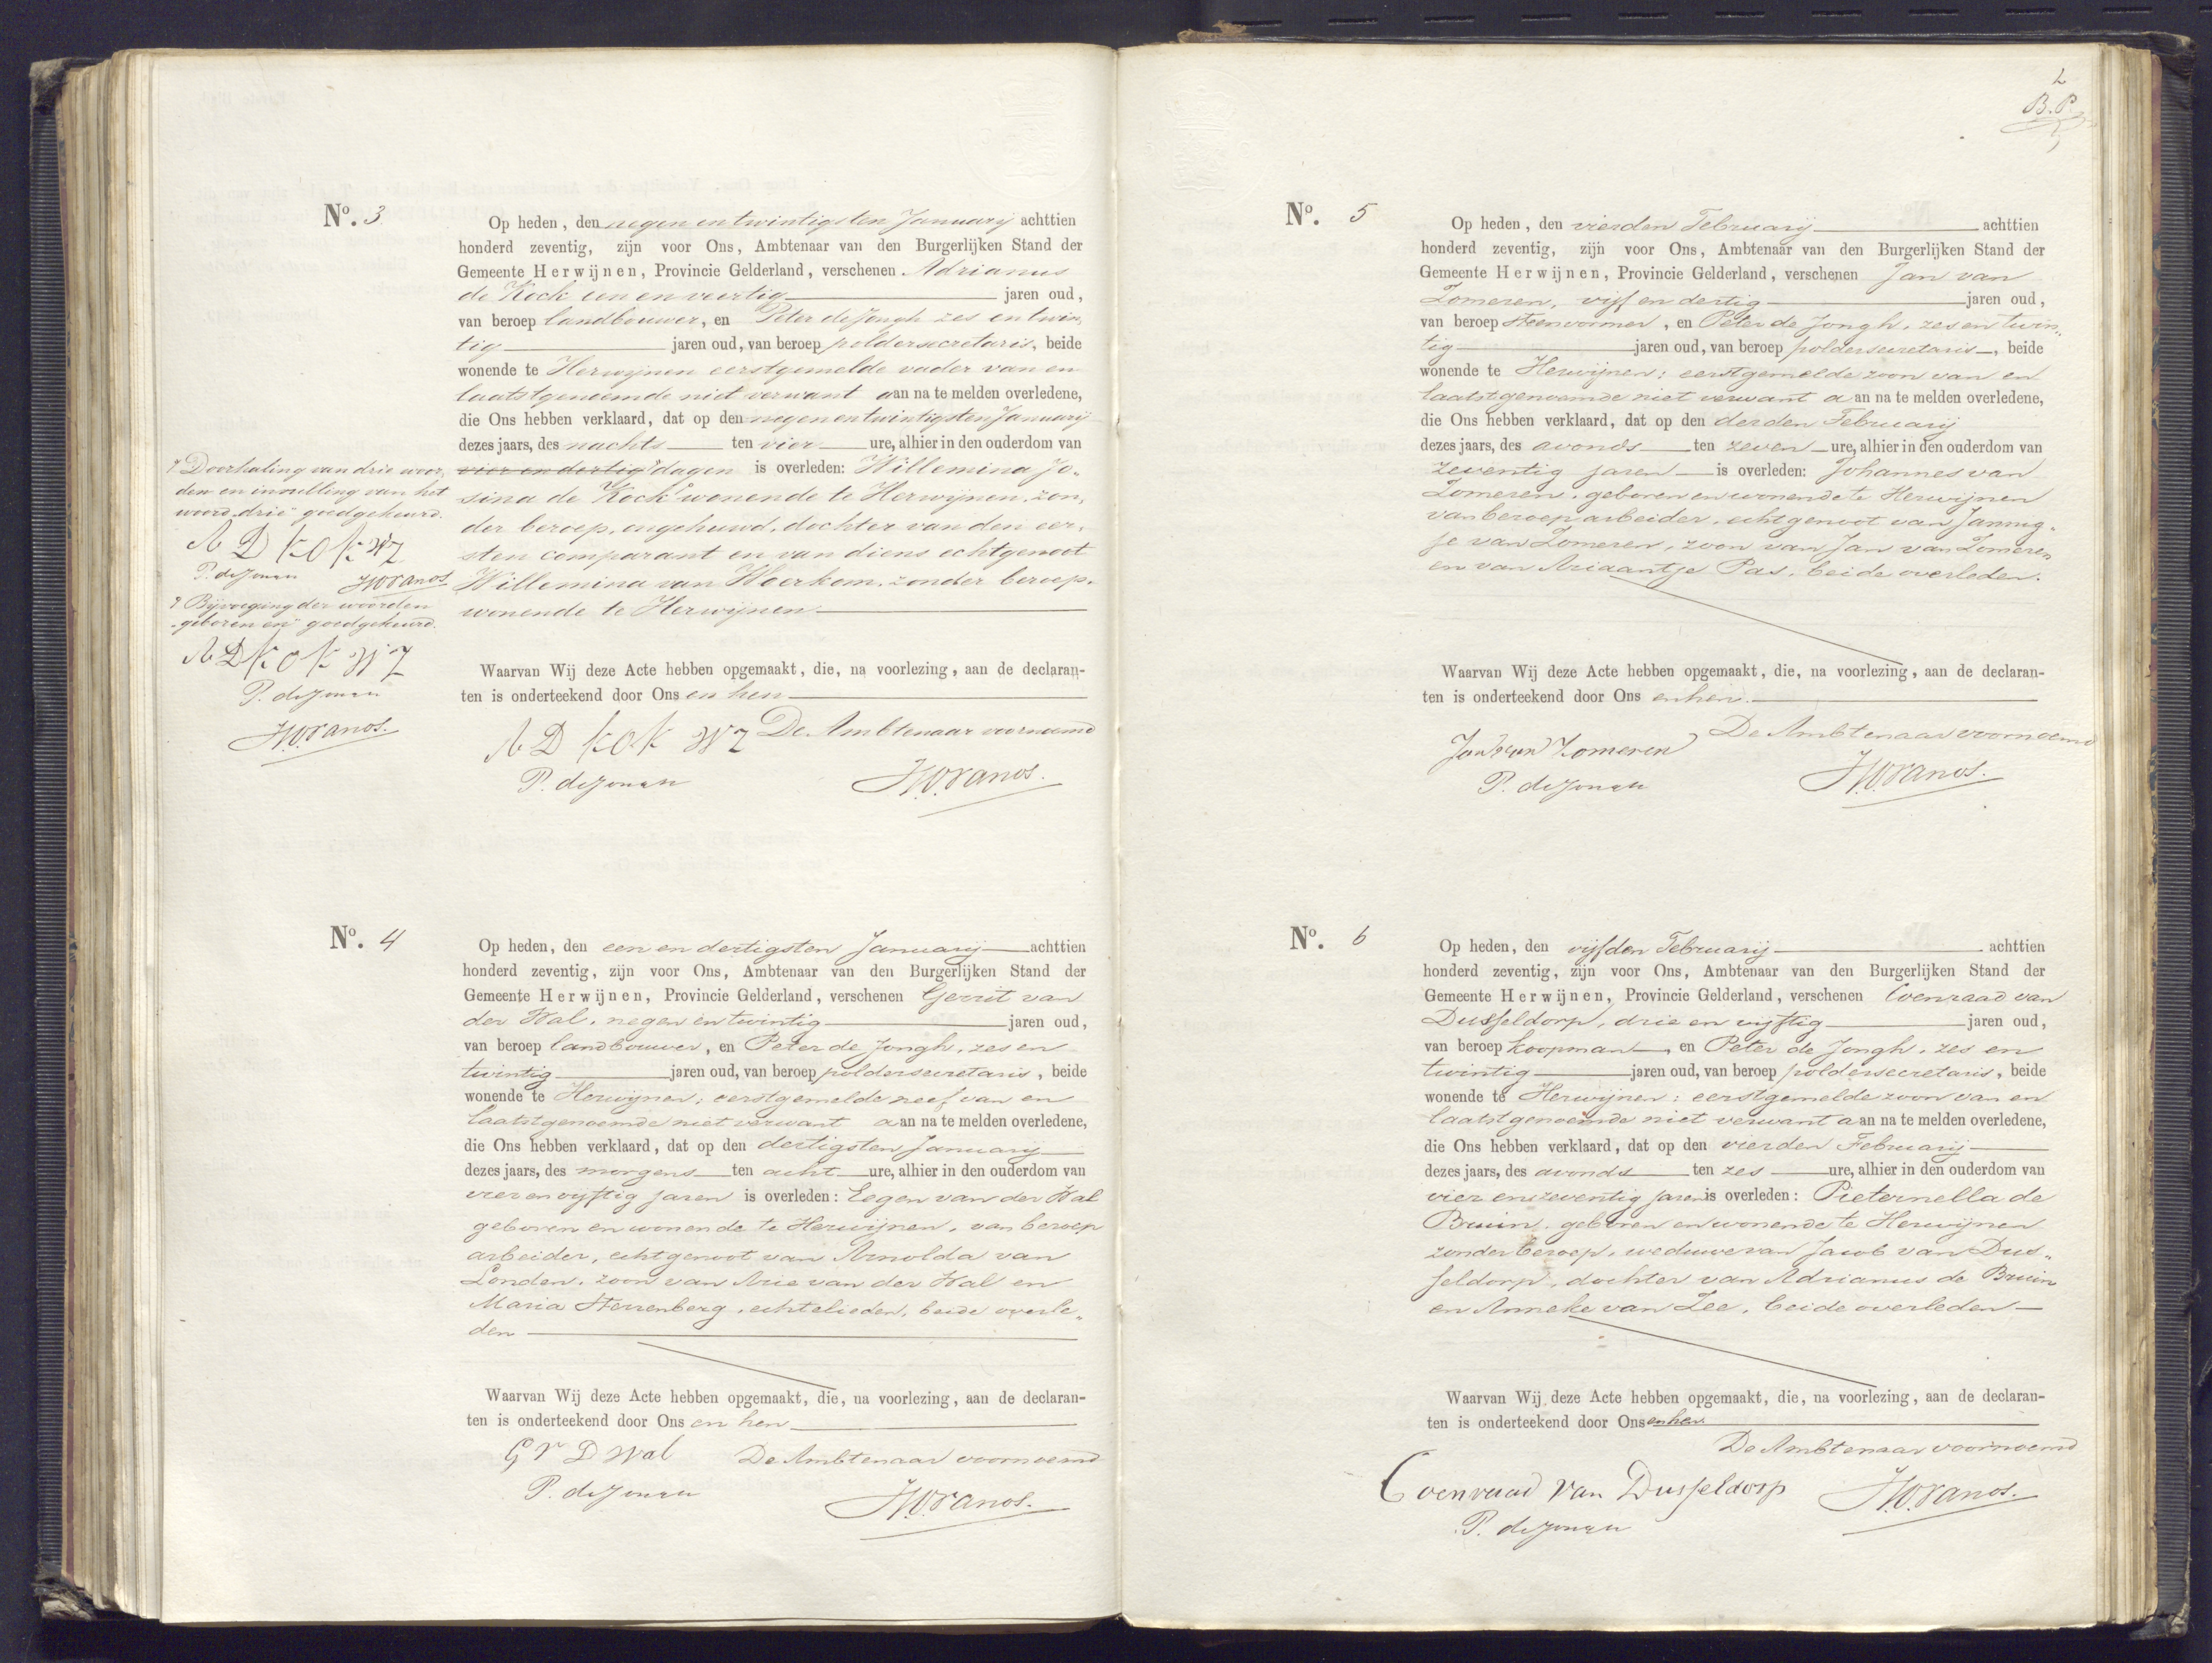 2
B. P.
No. 3
Op heden, den negen en twintigsten Januarij achttien
honderd zeventig, zijn voor Ons, Ambtenaar van den Burgerlijken Stand der
Gemeente Herwijnen, Provincie Gelderland, verschenen Adrianus
de Kock een en veertig jaren oud,
van beroep landbouwer, en Peter de Jongh zes en twin,
tig jaren oud, van beroep poldersecretaris, beide
wonende te Herwijnen eerstgemelde vader van en
laatstgenoemde niet verwant aan na te melden overledene,
die Ons hebben verklaard, dat op den negen en twintigsten Januarij
dezes jaars, des nachts ten vier ure, alhier in den ouderdom van
vier en dertig dagen is overleden: Willemina Jo„
sina de Kock wonende te Herwijnen, zon„
der beroep, ongehuwd, dochter van den eer„
sten comparant en van diens echtgenoot
Willemina van Weerkom, zonder beroep,
wonende te Herwijnen
Doorhaling van drie woor„
den en instelling van het
woord „drie" goedgekeurd.
A D KOK WZ
P. de Jongh HW van Os
Bijvoeging der woorden
„geboren en" goedgekeurd.
A D KOK WZ
P. de Jongh
HW van Os.
Waarvan Wij deze Acte hebben opgemaakt, die, na voorlezing, aan de declaran-
ten is onderteekend door Ons en hen
A D KOK WZ De Ambtenaar voornoemd
P. de Jongh HW van Os.
No. 4
Op heden, den een en dertigsten Januarij achttien
honderd zeventig, zijn voor Ons, Ambtenaar van den Burgerlijken Stand der
Gemeente Herwijnen, Provincie Gelderland, verschenen Gerrit van
der Wal, negen en twintig jaren oud,
van beroep landbouwer, en Peter de Jongh, zes en
twintig jaren oud, van beroep poldersecretaris, beide
wonende te Herwijnen; eerstgemelde neef van en
laatstgenoemde niet verwant aan na te melden overledene,
die Ons hebben verklaard, dat op den dertigsten Januarij
dezes jaars, des morgens ten acht ure, alhier in den ouderdom van
vier en vijftig jaren is overleden: Eegen van der Wal
geboren en wonende te Herwijnen, van beroep
arbeider, echtgenoot van Arnolda van
Londen, zoon van Arie van der Wal en
Maria Sterrenberg, echtelieden, beide overle„
den
Waarvan Wij deze Acte hebben opgemaakt, die, na voorlezing, aan de declaran-
ten is onderteekend door Ons en hen
G V D Wal De Ambtenaar voornoemd
P. de Jongh
HW van Os.
No. 5
Op heden, den vierden Februarij achttien
honderd zeventig, zijn voor Ons, Ambtenaar van den Burgerlijken Stand der
Gemeente Herwijnen, Provincie Gelderland, verschenen Jan van
Zomeren, vijf en dertig jaren oud,
van beroep steenvormer, en Peter de Jongh, zes en twin„
tig jaren oud, van beroep poldersecretaris, beide
wonende te Herwijnen; eerstgemelde zoon van en
laatstgenoemde niet verwant aan na te melden overledene,
die Ons hebben verklaard, dat op den derden Februarij
dezes jaars, des avonds ten zeven ure, alhier in den ouderdom van
zeventig jaren is overleden: Johannes van
Zomeren, geboren en wonende te Herwijnen
van beroep arbeider, echtgenoot van Jannig„
je van Zomeren, zoon van Jan van Zomeren
en van Ariaantje Pas, beide overleden.
Waarvan Wij deze Acte hebben opgemaakt, die, na voorlezing, aan de declaran-
ten is onderteekend door Ons en hen.
De Ambtenaar voornoemd
Jan van Zomeren
P. de Jongh HW van Os.
No. 6
Op heden, den vijfden Februarij achttien
honderd zeventig, zijn voor Ons, Ambtenaar van den Burgerlijken Stand der
Gemeente Herwijnen, Provincie Gelderland, verschenen Coenraad van
Dusseldorp, drie en vijftig jaren oud,
van beroep koopman, en Peter de Jongh, zes en
twintig jaren oud, van beroep poldersecretaris, beide
wonende te Herwijnen; eerstgemelde zoon van en
laatstgenoemde niet verwant aan na te melden overledene,
die Ons hebben verklaard, dat op den vierden Februarij
dezes jaars, des avonds ten zes ure, alhier in den ouderdom van
vier en zeventig jaren is overleden: Pieternella de
Bruin, geboren en wonende te Herwijnen
zonder beroep, weduwe van Jacob van Dus„
seldorp, dochter van Adrianus de Bruin
en Anneke van Zee, beide overleden
Waarvan Wij deze Acte hebben opgemaakt, die, na voorlezing, aan de declaran-
ten is onderteekend door Ons en hen
De Ambtenaar voornoemd
Coenraad van Dusseldorp HW van Os.
P. de Jongh